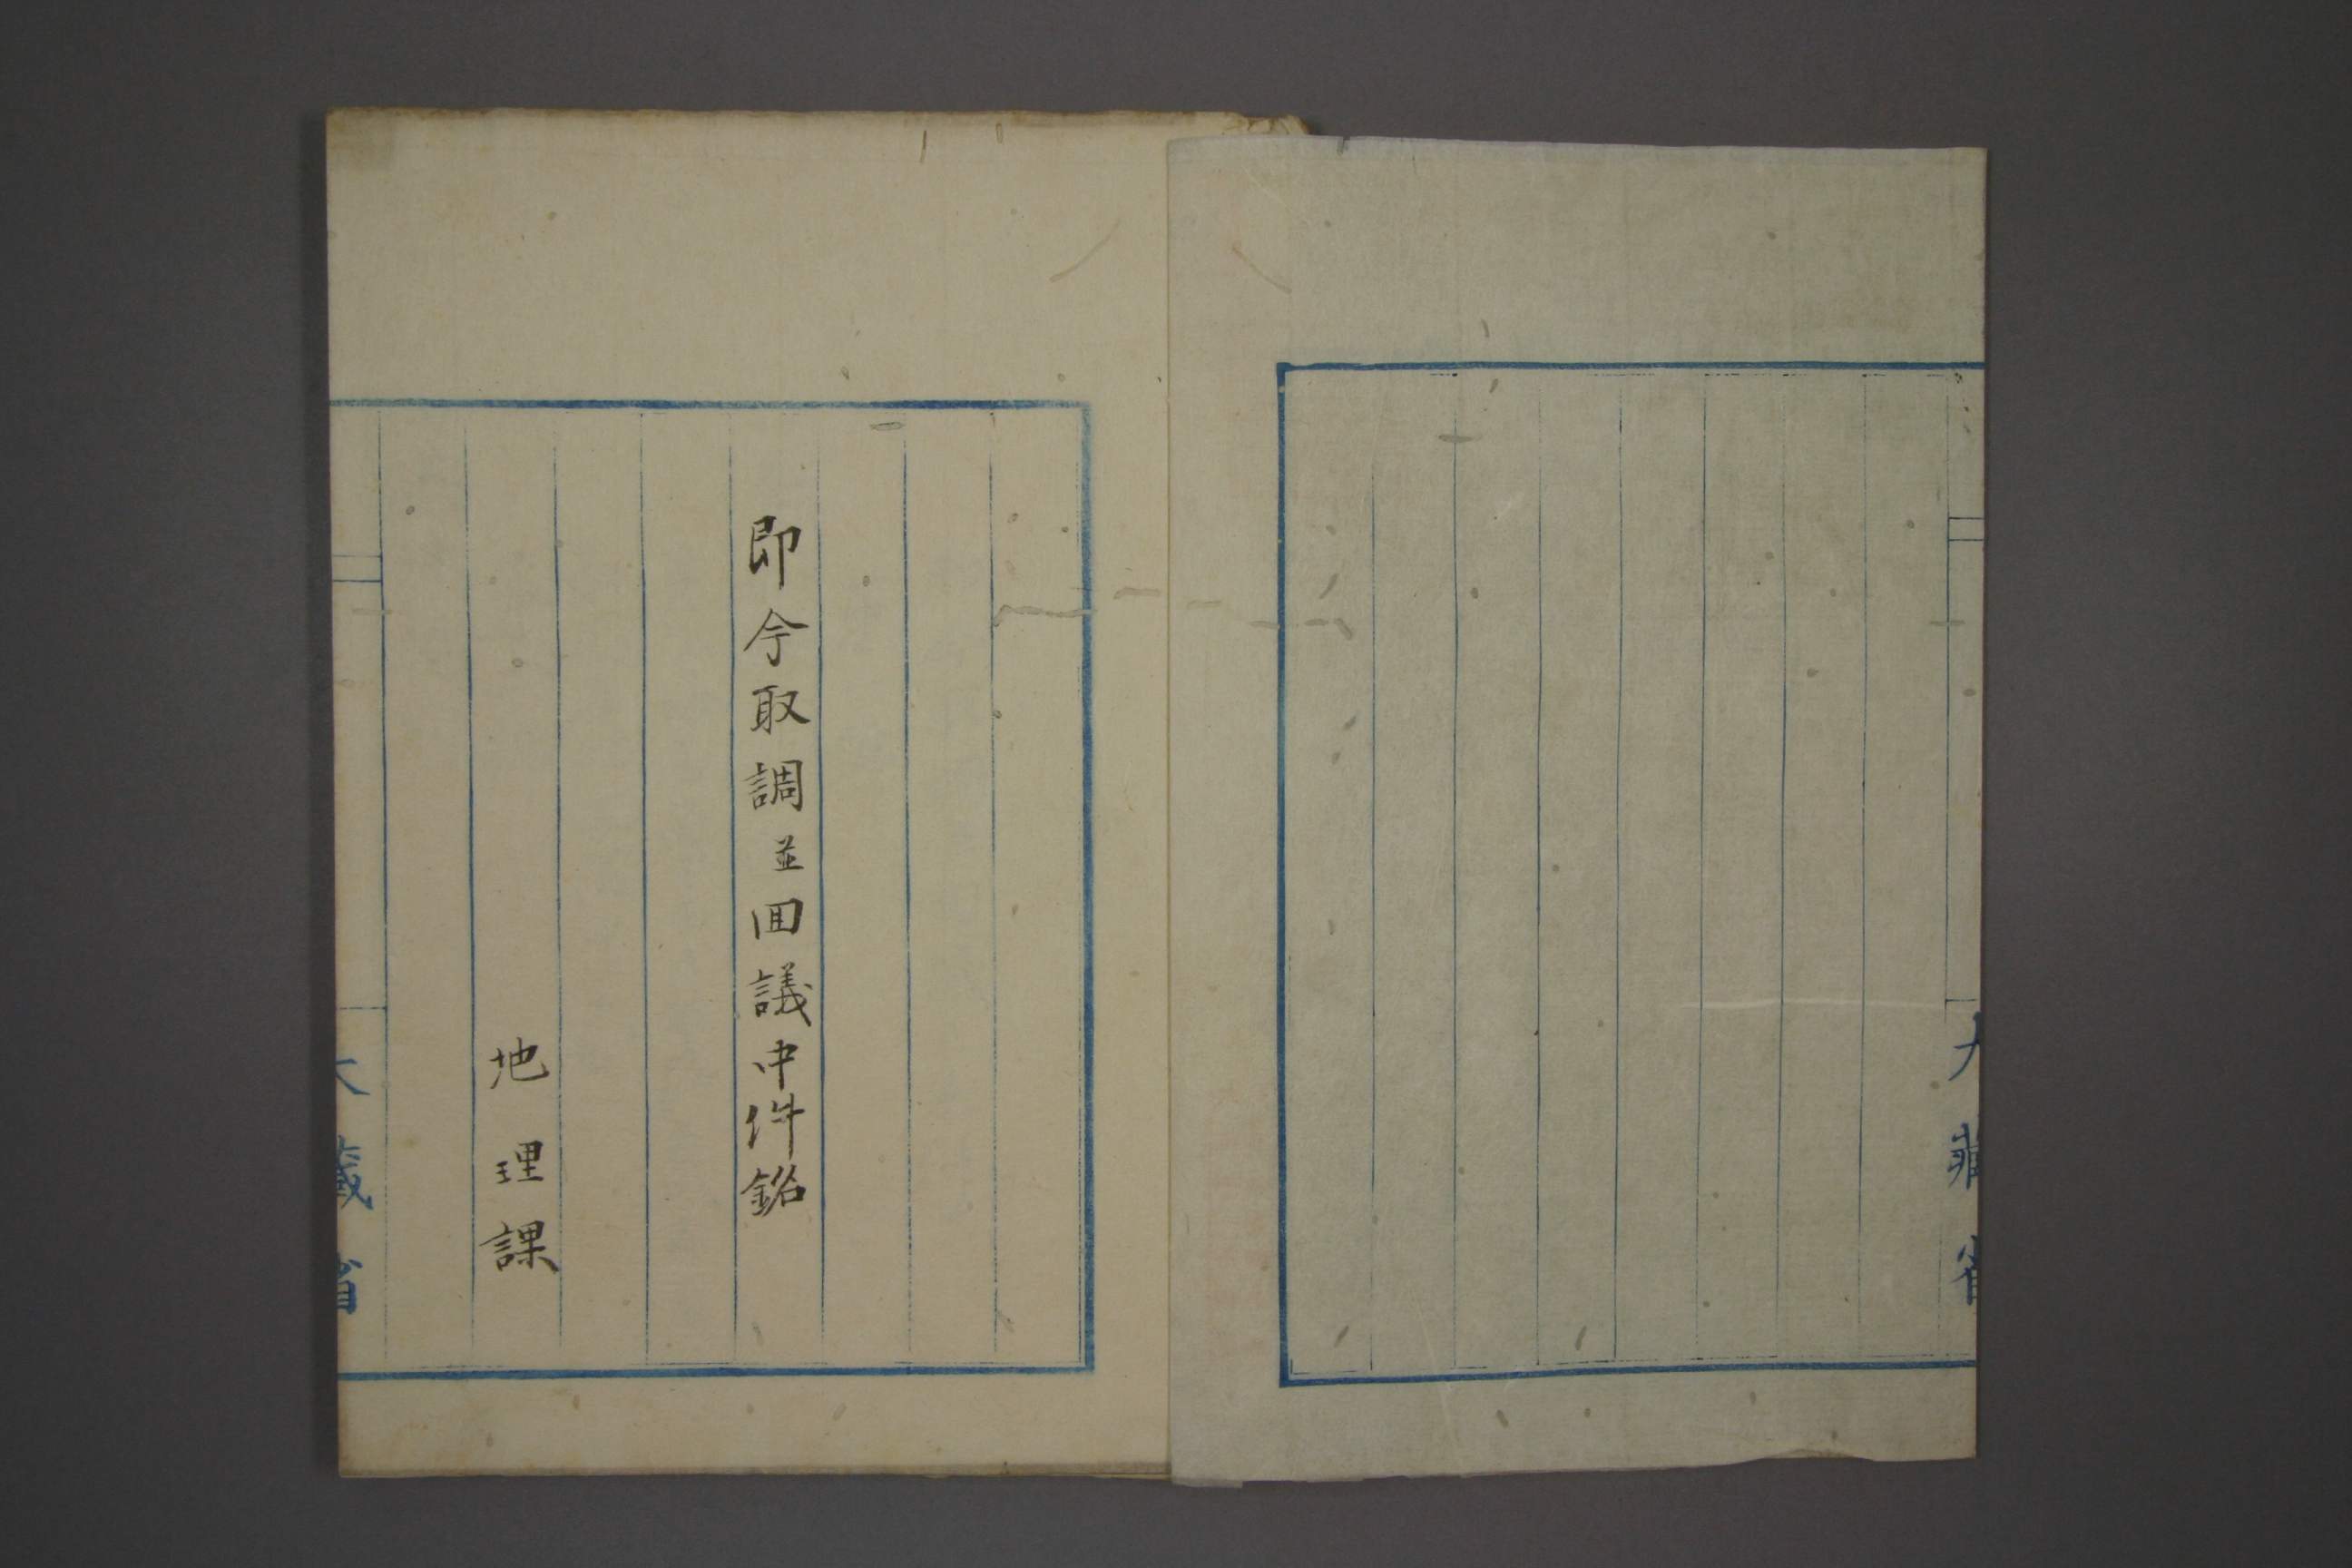 大藏省
即今取調並回議中件銘
地理課
大藏省